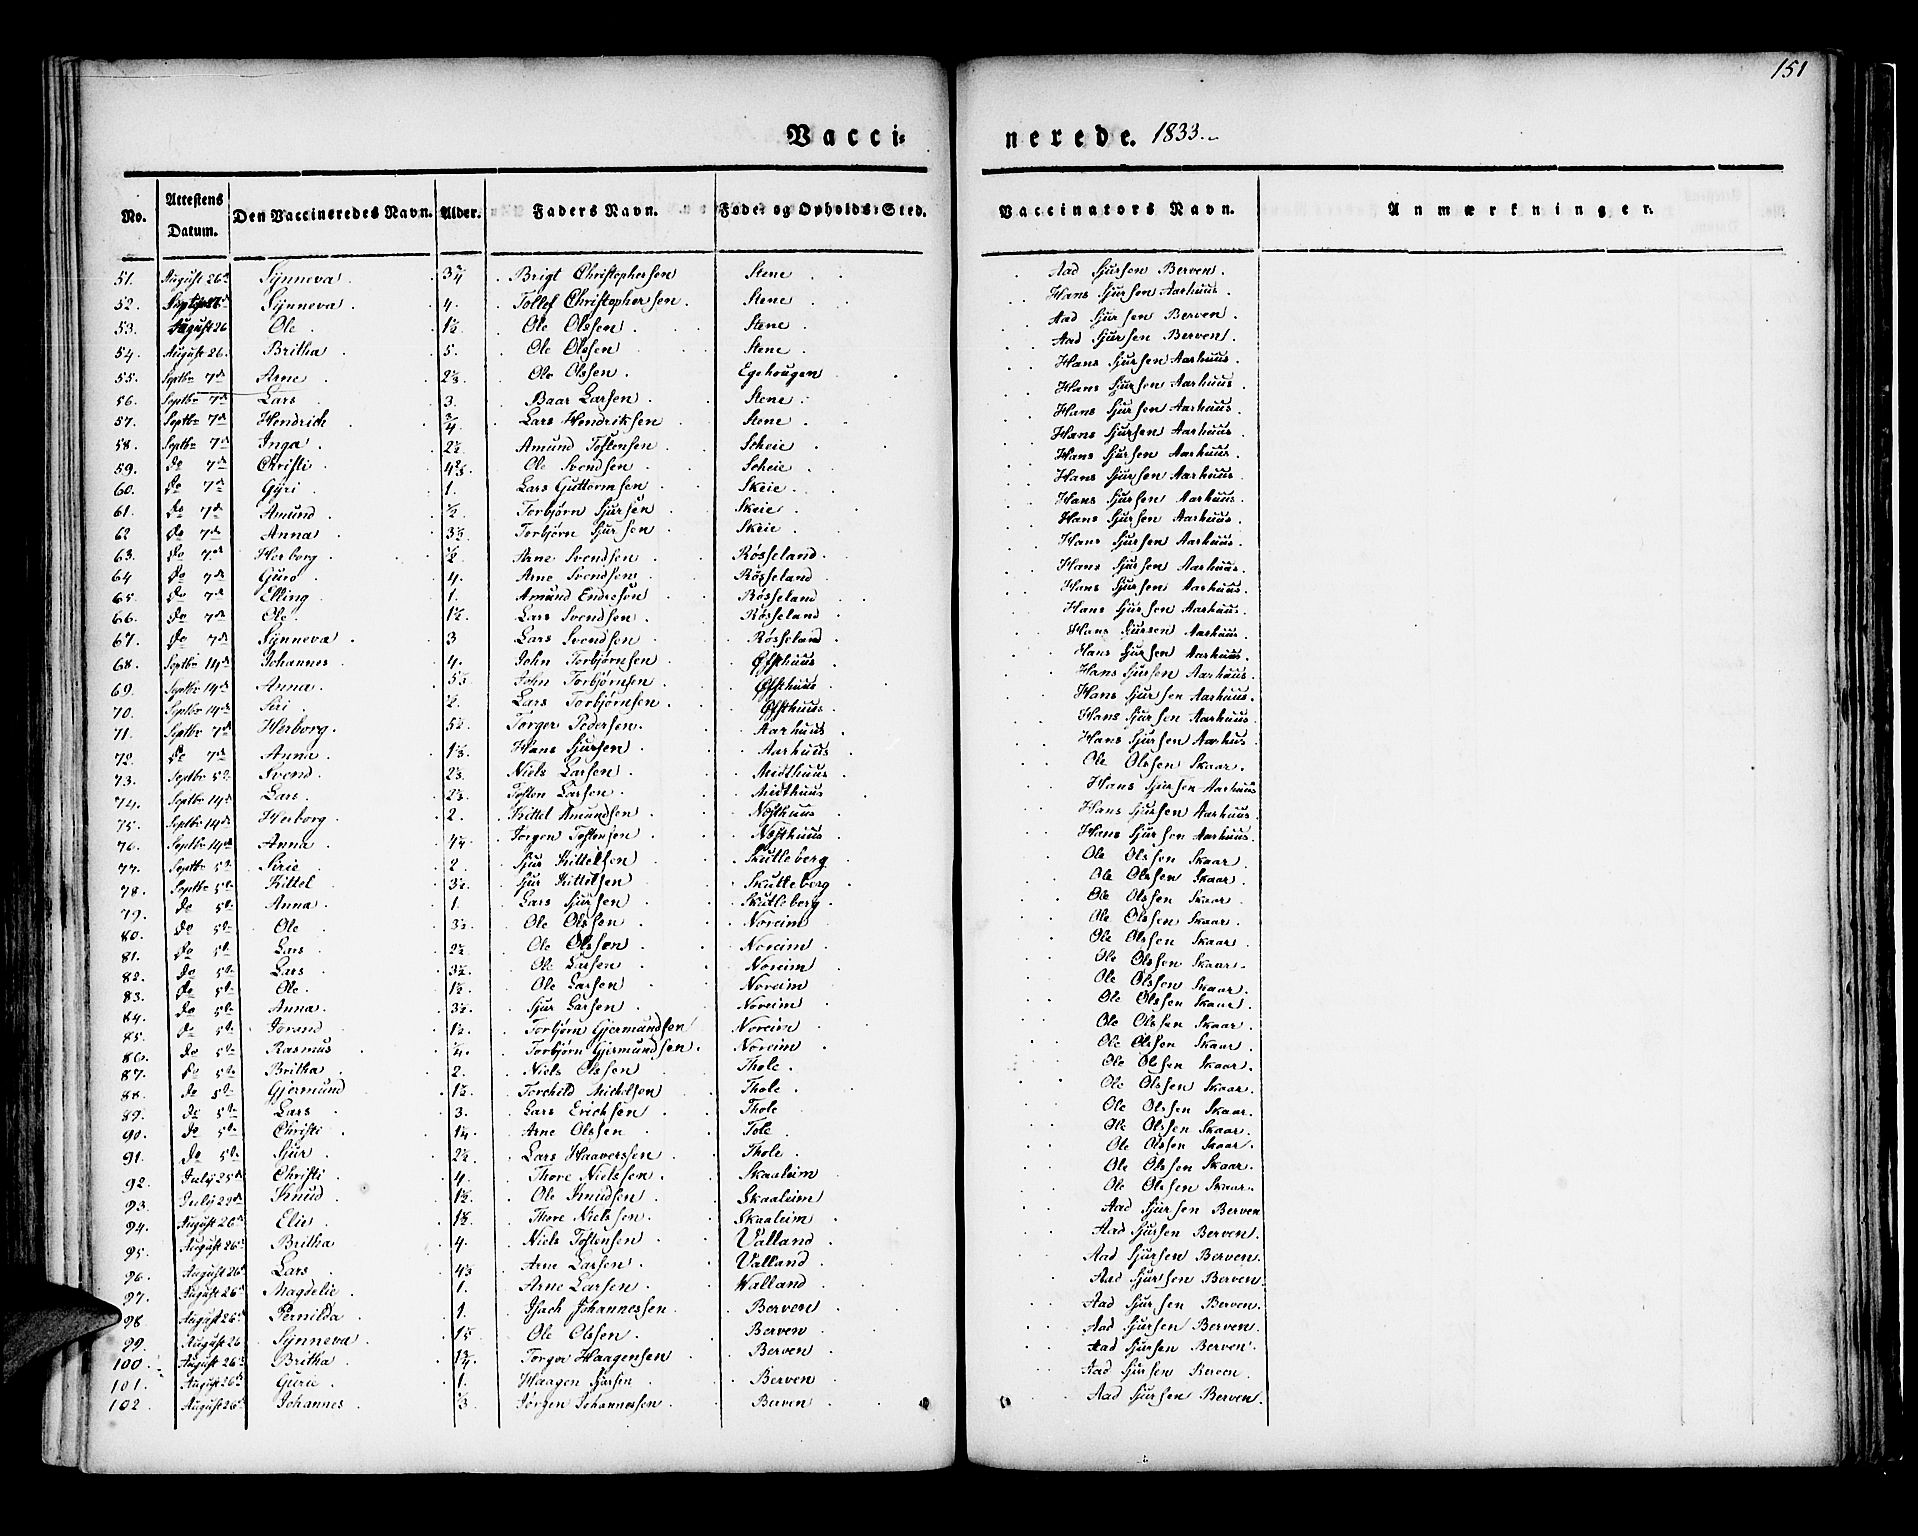 151
Vacci- nerede. 1833.
No. Attestens Datum. Den Vaccineredes Navn. Alder. Faders Navn. Føde- og Opholds-Sted. Vaccinators Navn. Anmærkninger.
51. August 26 Synneva 3/4 Brigt Christophersen Stene Aad Sjursen Berven.
52. Synneva 4. Tollef Christophersen. Stene Hans Sjursen Aarhuus.
53. August 26 Ole 1½ Ole Olssen Stene Aad Sjursen Berven.
54. August 26. Britha 5. Ole Olssen Stene Aad Sjursen Berven.
55. Septbr 7de Arne 2⅓ Ole Olssen. Egehougen Hans Sjursen Aarhuus.
56. Septbr 7de Lars 3. Baar Larsen Stene Hans Sjursen Aarhuus.
57. Septbr 7de Hendrich ¾ Lars Hendriksen Stene Hans Sjursen Aarhuus.
58. Septbr 7de Inga 2½ Amund Tostensen Scheie Hans Sjursen Aarhuus.
59. Do 7de Christi Ole Svendsen Scheie Hans Sjursen Aarhuus.
60. Do 7de Gyri 1. Lars Guttormsen Skeie Hans Sjursen Aarhuus.
61. Do 7de Amund ½ Torbjørn Sjursen Skeie Hans Sjursen Aarhuus.
62 Do 7de Anna 3½ Torbjørn Sjursen Skeie Hans Sjursen Aarhuus.
63. Do 7de Herborg ½ Arne Svendsen Røsseland Hans Sjursen Aarhuus.
64 Do 7de Guro 4. Arne Svendsen Røsseland Hans Sjursen Aarhuus.
65. Do 7de Elling 1. Amund Endresen Røsseland Hans Sjursen Aarhuus.
66. Do 7de Ole 1½ Lars Svendsen Røsseland Hans Sjursen Aarhuus.
67. Do 7de Synneva 3 Lars Svendsen Røsseland Hans Sjursen Aarhuus.
68. Septbr 14de Johannes 4. John Torbjørnsen Øfsthuus Hans Sjursen Aarhuus.
69. Septbr 14de Anna 5½ John Torbjørnsen Øfsthuus Hans Sjursen Aarhuus.
70. Septbr 14de Siri ½ Lars Torbjørnsen Øfsthuus. Hans Sjursen Aarhuus.
71. Septbr 7de Herborg. Torger Pedersen. Aarhuus Hans Sjursen Aarhuus.
72. Do 7de Anna 1⅓ Hans Sjursen Aarhuus Hans Sjursen Aarhus.
73. Septbr 5te Svend 2⅓ Niels Larsen Midthuus Ole Olssen Skaar.
74. Septbr 14de Lars 2⅓ Tosten Larsen Midthuus Hans Sjursen Aarhuus
75. Septbr 14de Herborg 2. Kittel Amundsen Nesthuus Hans Sjursen Aarhuus.
76. Septbr 14de Anna Jørgen Tostensen Nesthuus Hans Sjursen Aarhuus.
77. Septbr 5te Sirie 2. Sjur Kittelsen Skutleberg Ole Olssen Skaar.
78. Septbr 5te Kittel 3½ Sjur Kittelsen Skutleberg Ole Olssen Skaar.
79. Do 5te Anna 1. Lars Sjursen Skutleberg Ole Olssen Skaar.
80. Do 5te Ole 3½ Ole Olssen Noreim Ole Olssen Skaar.
81. Do 5te Lars 2½ Ole Olssen Noreim Ole Olssen Skaar.
82. Do 5te Lars 3½ Ole Larsen Noreim Ole Olssen Skaar.
83. Do 5te Ole 1½ Ole Larsen Noreim Ole Olssen Skaar.
84. Do 5te Anna 3½ Sjur Larsen Noreim Ole Olssen Skaar.
85. Do 5te Jorand 1½ Torbjørn Gjermundsen Noreim Ole Olssen Skaar.
86. Do 5te Rasmus ¼ Torbjørn Gjermundsen. Noreim Ole Olssen Skaar.
87. Do 5te Britha 2. Niels Olssen Thole. Ole Olssen Skaar.
88. Do 5te Gjermund 1½ Torchild Michelsen Thole. Ole Olssen Skaar.
89. Do 5te Lars 3. Lars Erichsen Thole Ole Olssen Skaar.
90. Do 5te Christi 1¼ Arne Olssen Tole Ole Olssen Skaar.
91. Do 5te Sjur 2½ Lars Haaverssen Thole Ole Olssen Skaar.
92. July 25de Christi 4. Thore Nielssen Skaaleim Ole Olssen Skaar.
93. July 29de Knud 1½ Ole Knudsen Skaaleim Ole Olssen Skaar.
94. August 26de Elie Thore Nielssen Skaaleim Aad Sjursen Berven
95. August 26de Britha 4. Niels Tostensen Valland Aad Sjursen Berven.
96. August 26de Lars Arne Larsen Valland Aad Sjursen Berven.
97. August 26de Magdelie 1. Arne Larsen Walland Aad Sjursen Berven.
98. August 26de Pernilda 1. Isach Johannessen Berven Aad Sjursen Berven.
99. August 26 Synneva Ole Olssen Berven Aad Sjursen Berven.
100. August 26de Britha Torger Haagensen Berven Aad Sjursen Berven.
101. August 26de Gurie 1. Haagen Sjursen Berven Aad Sjursen Berven.
102. August 26de Johannes ⅓ Jørgen Johannessen Berven Aad Sjursen Berven.